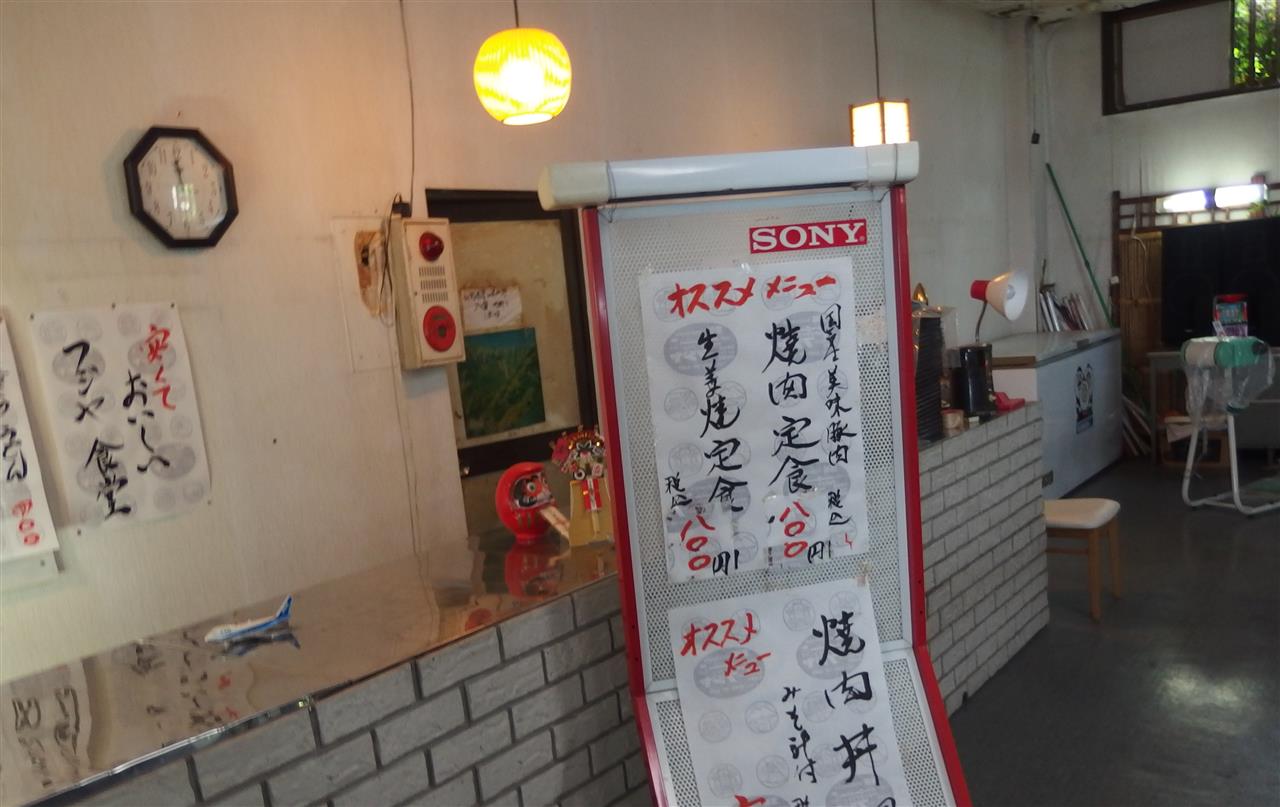 SONY
オススメ メニュー
国産美味豚肉
焼肉定食
税込
八〇〇円
生姜焼定食
税込
八〇〇円
オススメ
メニュー
焼肉丼
みそ汁付
安くて
おいしい
フジヤ
食堂